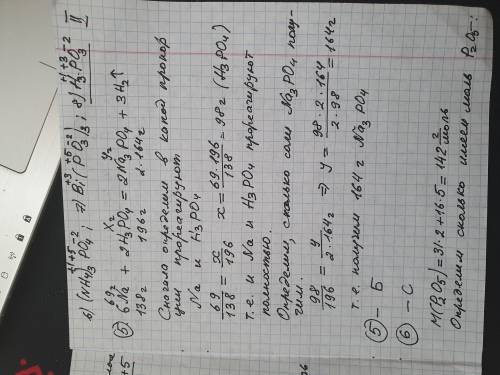 +1 +5 -2 +3 +5 -2 +1 +3 -2
6) (NH₄)₃PO₄; 7) Bi(PO₃)₃; 8) H₃PO₃ II
69г xг yг
⑤ 6Na + 2H₃PO₄ = 2Na₃PO₄ + 3H₂↑
138г 196г 2·164г
Сначала определим в какой пропор
ции прореагируют
Na и H₃PO₄
69/138 = x/196 x = 69·196/138 = 98г (H₃PO₄)
т.е. и Na и H₃PO₄ прореагируют
полностью.
Определим, сколько соли Na₃PO₄ полу-
чим.
98/196 = y/2·164г ⇒ y = 98·2·164/2·98 = 164г
т.е. получим 164г Na₃PO₄
⑤ - Б
⑥ - С
M(P₂O₅) = 31·2+16·5 = 142 г/моль
Определим сколько имеем моль P₂O₅:
+5